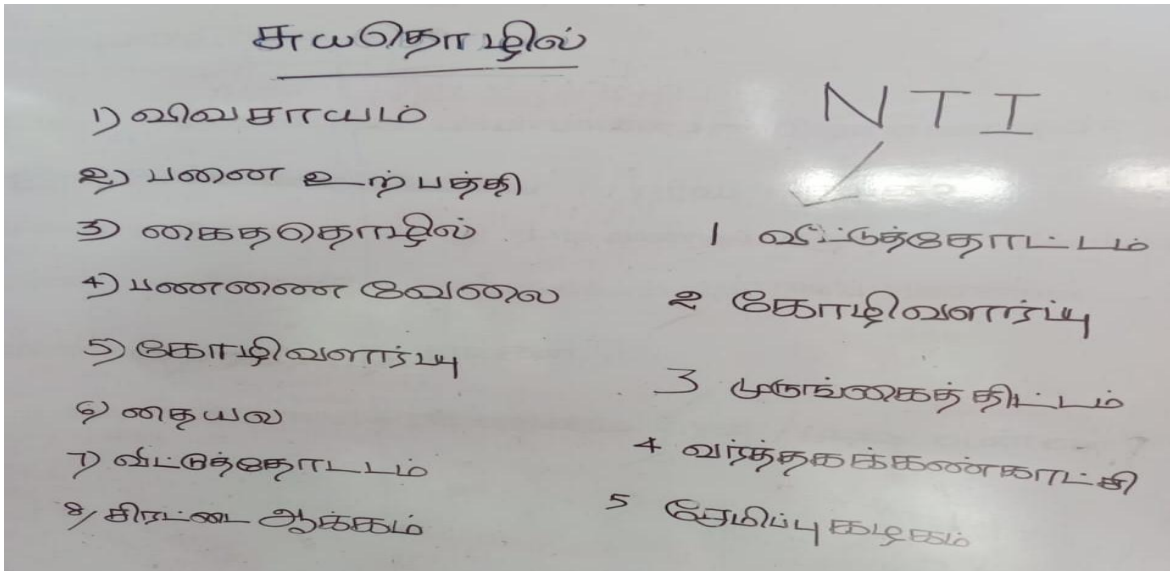 சுயதொழில்
1) விவசாயம்
2) பனை உற்பத்தி
3) கைததொழில்
4) பணணை வேலை
5) கோழிவளார்ப்பு
6) தையல
7) வீட்டுத்தோடடம்
8) சிரட்டை ஆக்கம்
NTI
1 வீட்டுத்தோட்டம்
2 கோழிவளார்ப்பு
3 முருங்கைத் திட்டம்
4 வர்த்தகக்கண்காட்சி
5 சேமிப்பு கழகம்